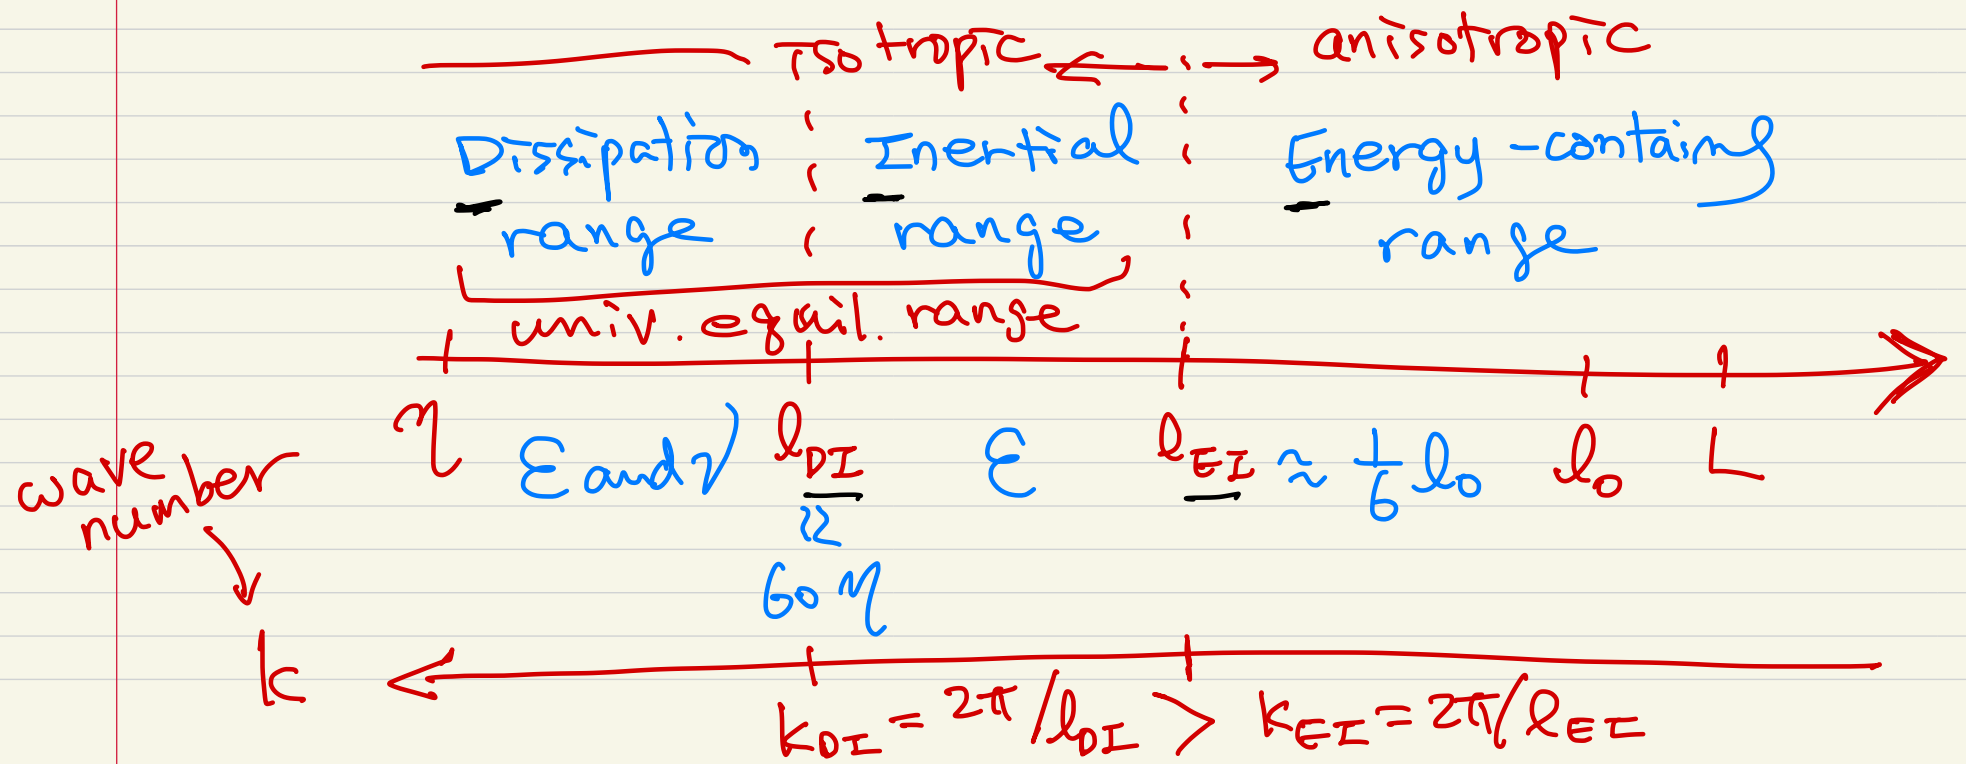 Isotropic ← → anisotropic
Dissipation Inertial Energy-containing
range range range
univ. equil. range
η ε and ν l_DI ε l_EI ≈ 1/6 l_0 l_0 L
≈
60η
wave
number
k
k_DI = 2π/l_DI > k_EI = 2π/l_EI